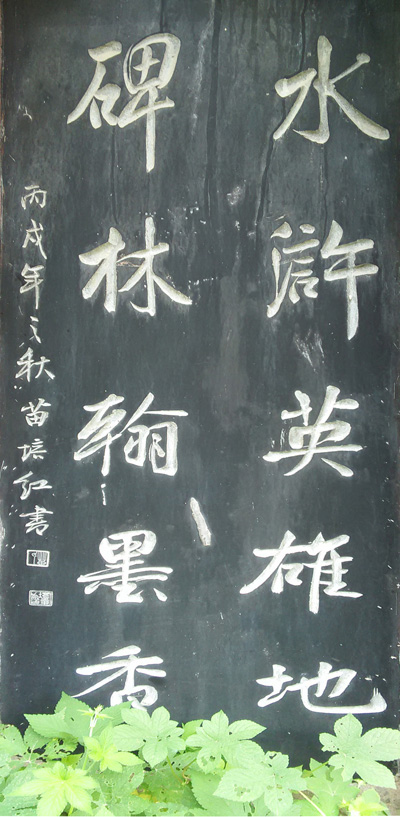 水浒英雄地
碑林翰墨香
丙戌年之秋苗培红书